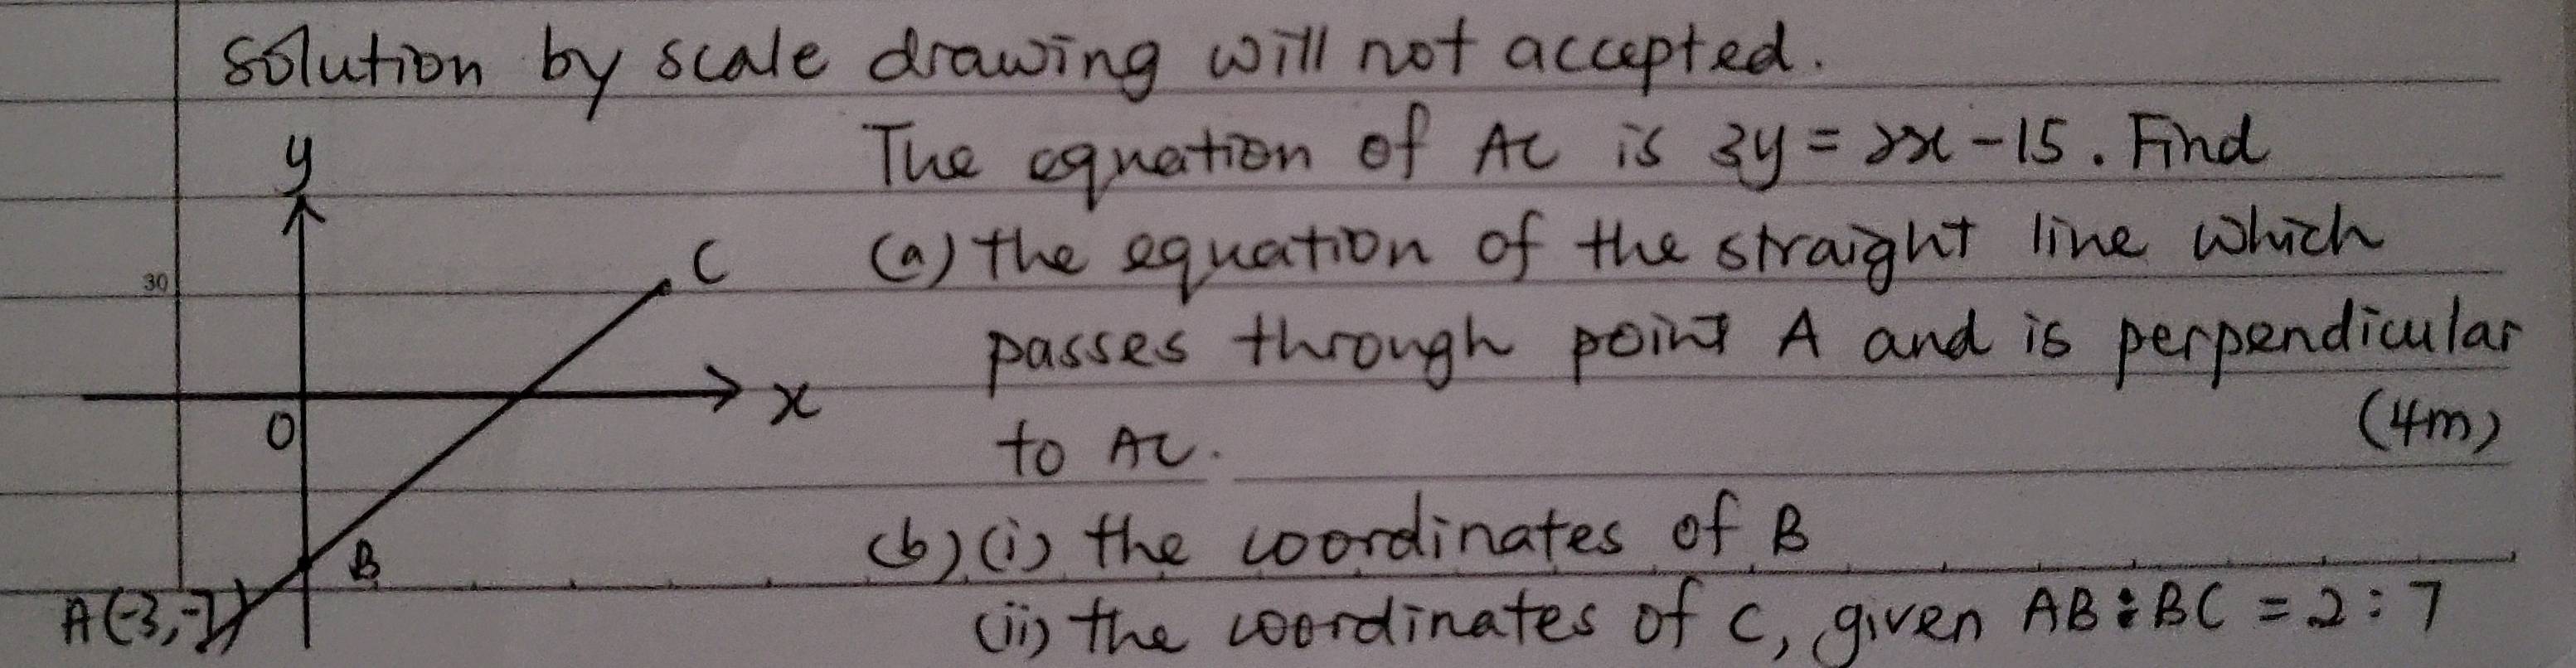 Solution by scale drawing will not accepted.
The equation of AC is 3y = 2x - 15. Find
y
(a) the equation of the straight line which
C
30
passes through point A and is perpendicular
x
(4m)
O
to AC.
(b) (i) the coordinates of B
B
A(-3,-7)
(ii) the coordinates of C, given AB : BC = 2 : 7